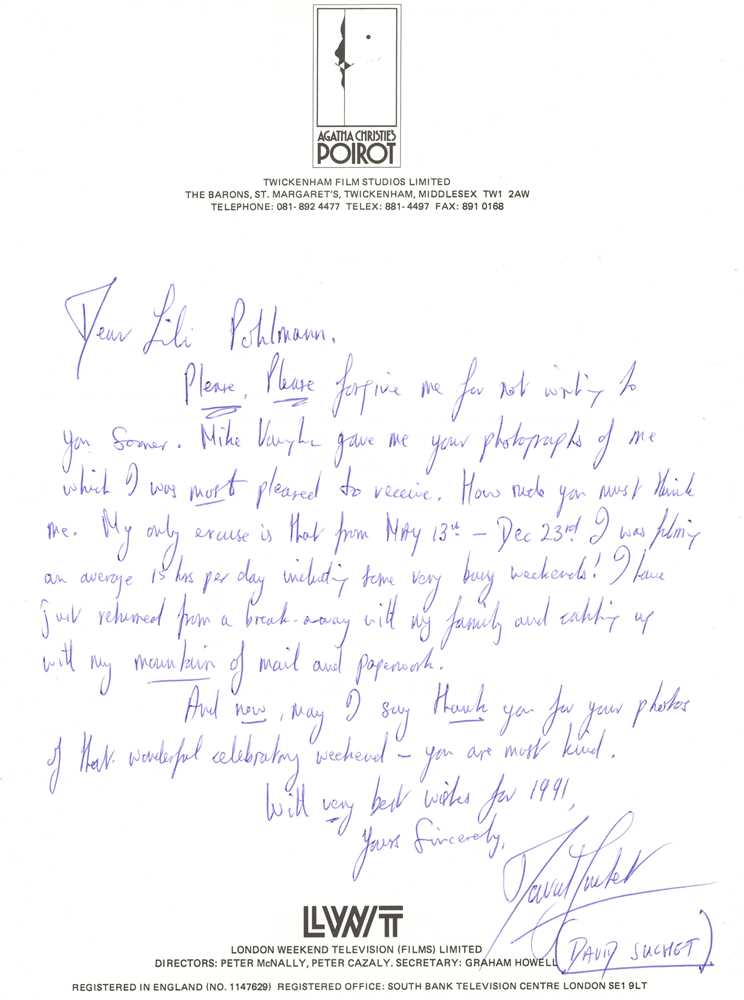 AGATHA CHRISTIE'S
POIROT
TWICKENHAM FILM STUDIOS LIMITED
THE BARONS, ST. MARGARET'S, TWICKENHAM, MIDDLESEX TW1 2AW
TELEPHONE: 081-892 4477 TELEX: 881-4497 FAX: 891 0168
Dear Lili Pohlmann.
Please, Please forgive me for not writing to
you sooner. Mike Vaughan gave me your photographs of me
which I was most pleased to receive. How rude you must think
me. My only excuse is that from MAY 13th – Dec 23rd I was filming
an average 15 hrs per day including some very busy weekends! I have
just returned from a break-away with my family and catching up
with my mountain of mail and paperwork.
And now, may I say thank you for your photos
of that wonderful celebratory weekend – you are most kind.
With very best wishes for 1991,
Yours Sincerely,
David Suchet
(DAVID SUCHET)
LWT
LONDON WEEKEND TELEVISION (FILMS) LIMITED
DIRECTORS: PETER McNALLY, PETER CAZALY. SECRETARY: GRAHAM HOWELL
REGISTERED IN ENGLAND (NO. 1147629) REGISTERED OFFICE: SOUTH BANK TELEVISION CENTRE LONDON SE1 9LT